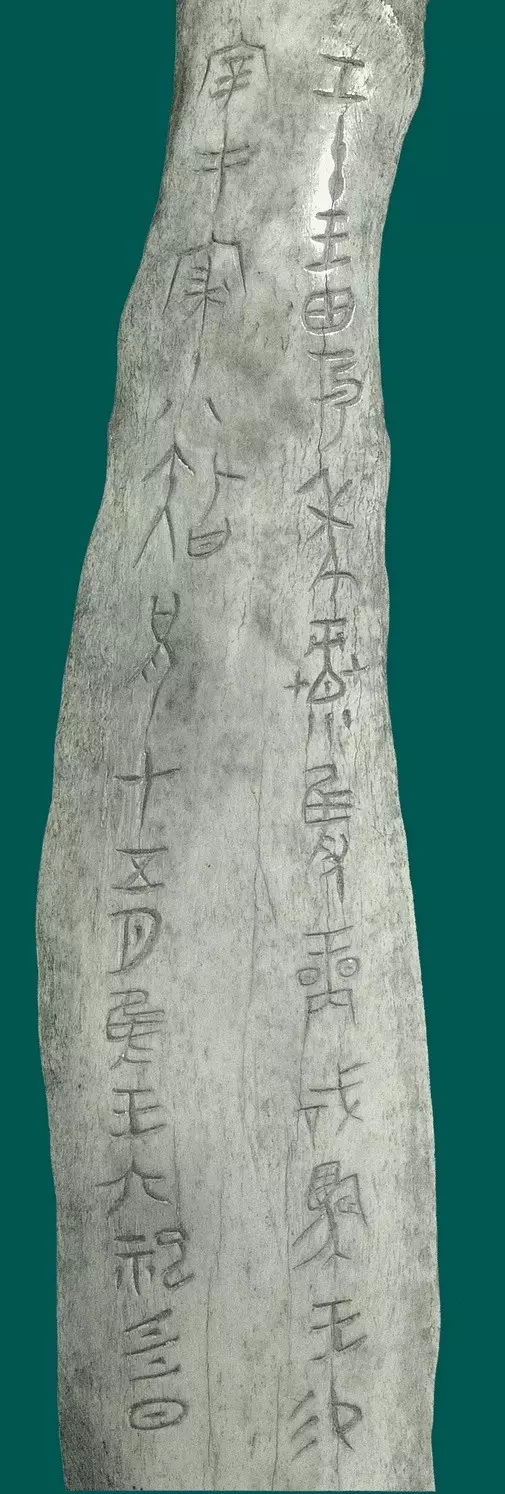 壬午王田于麥彔隻商戠兕王易
宰丰寢小𥎦兄才五月隹王六祀彡日